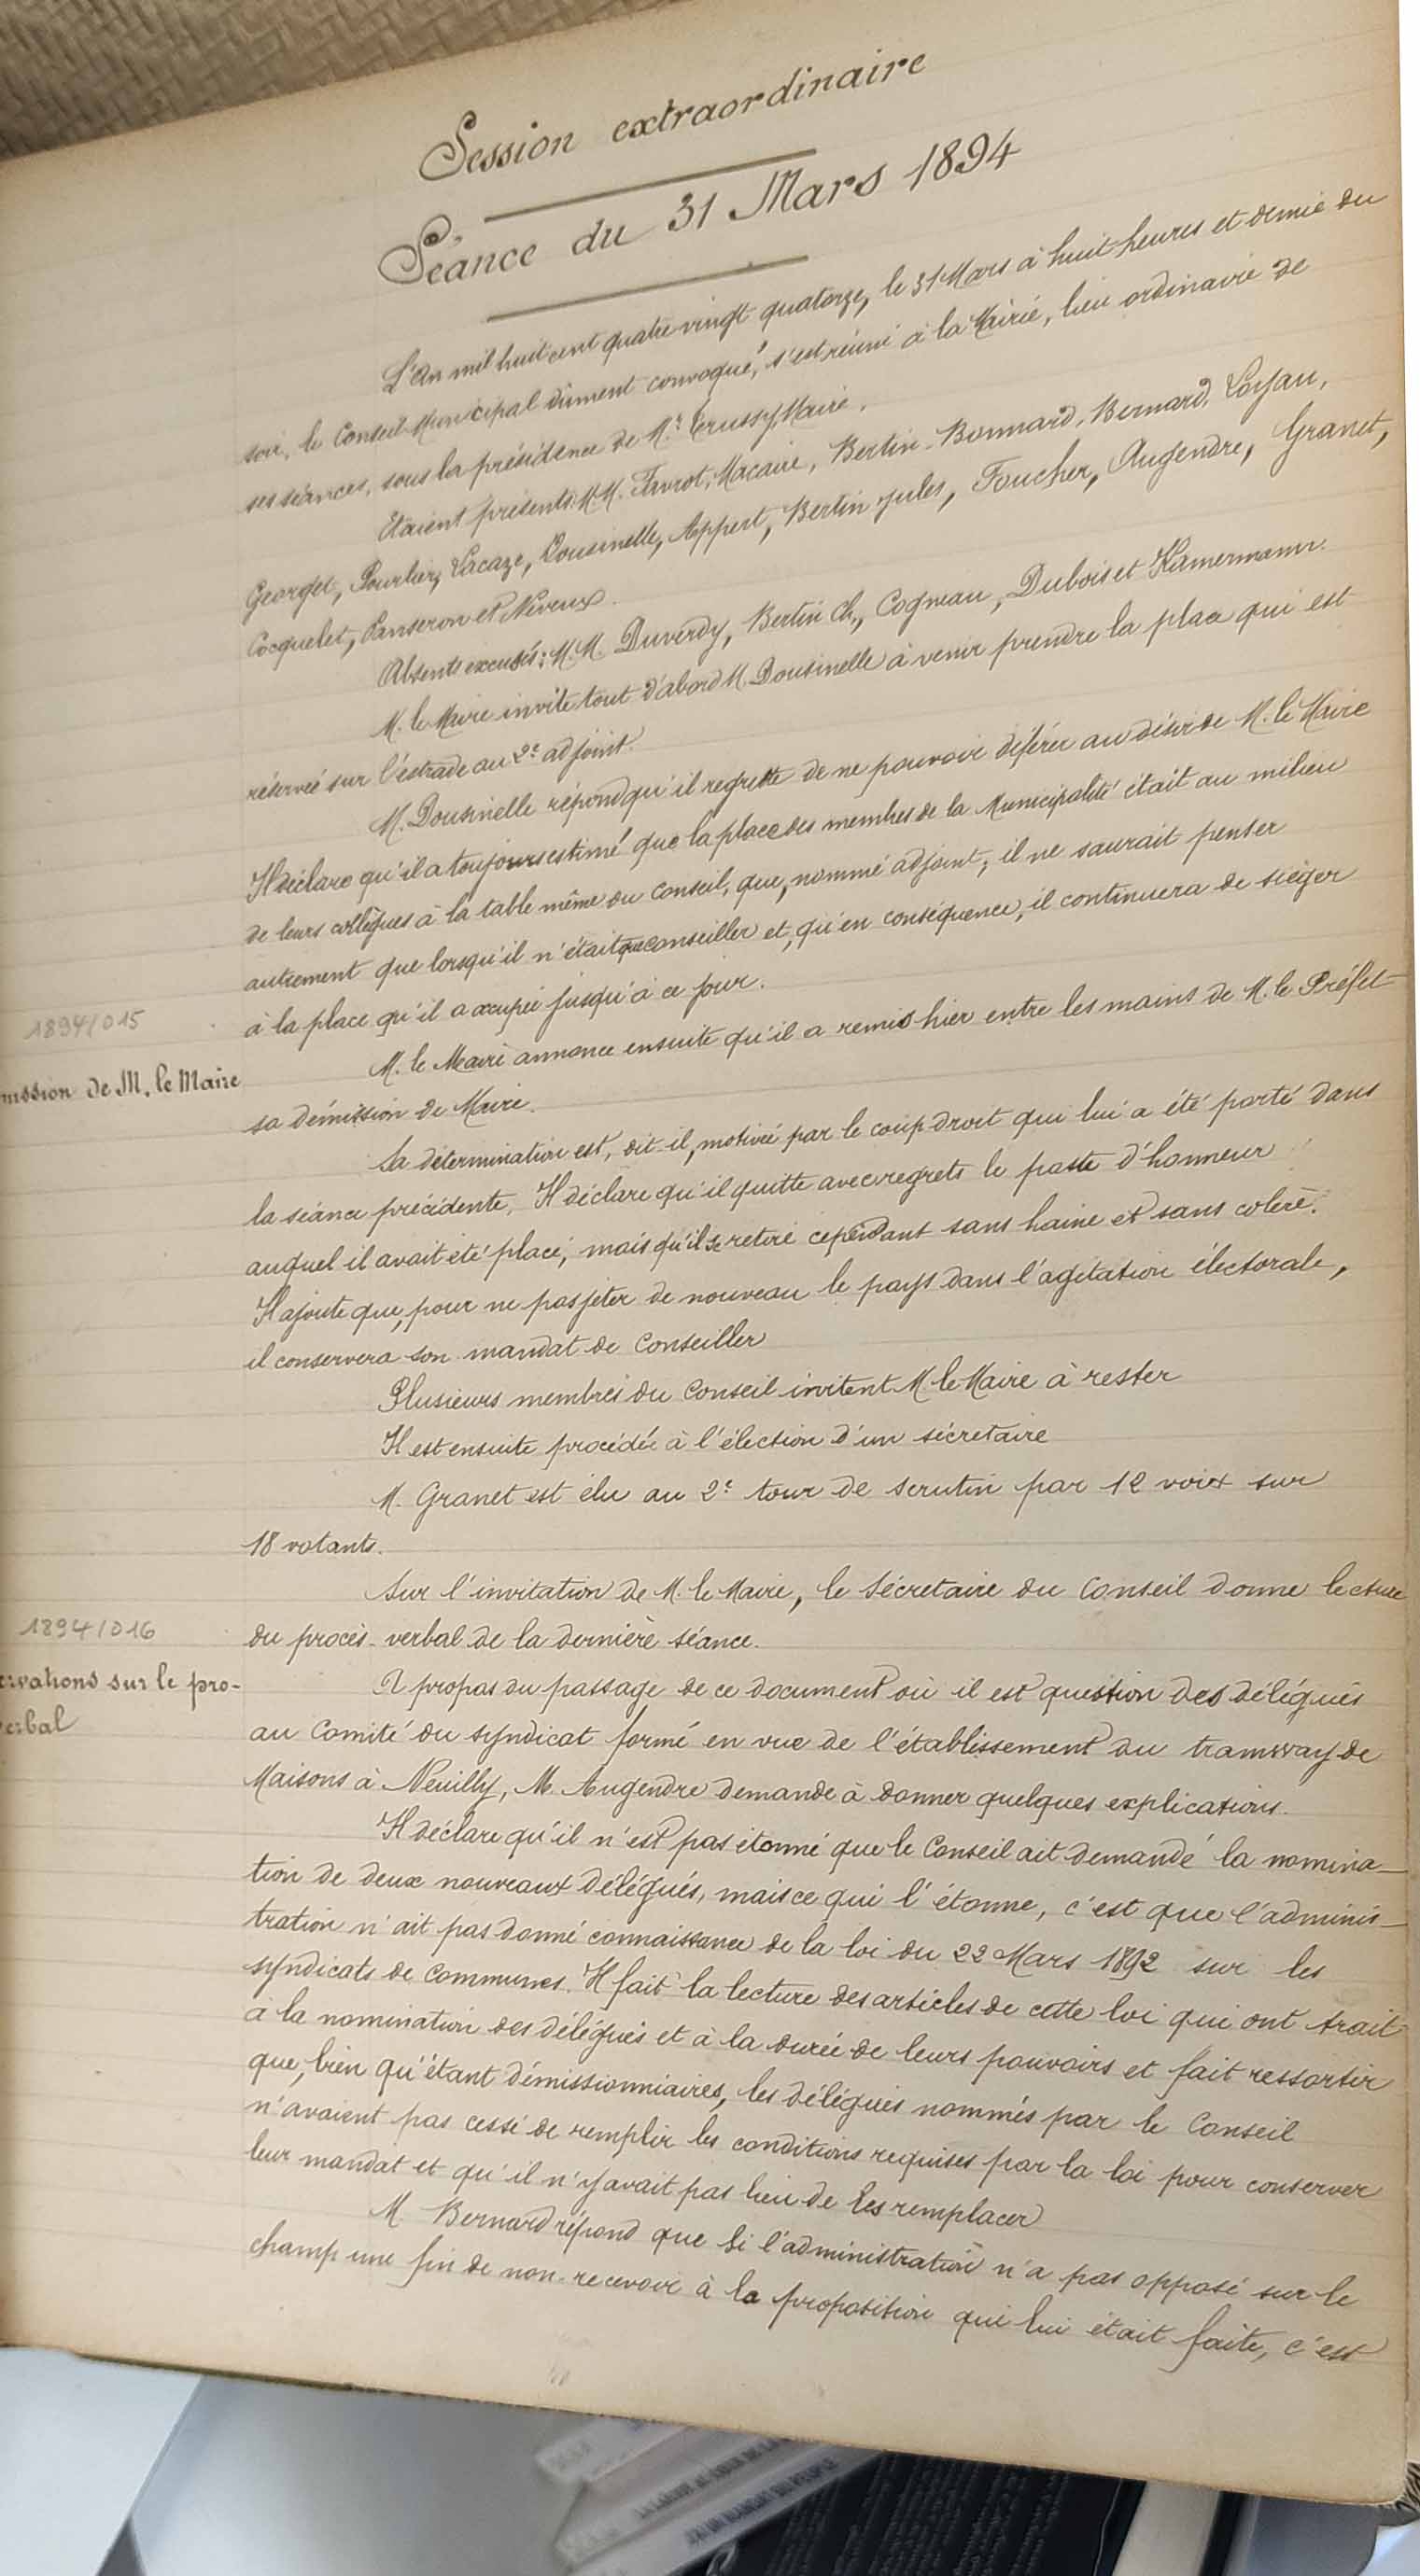 Session extraordinaire
Séance du 31 Mars 1894
L'An mil huit cent quatre vingt quatorze, le 31 Mars à huit heures et demie du
soir, le Conseil Municipal dûment convoqué, s'est réuni à la Mairie, lieu ordinaire de
ses séances, sous la présidence de M.r Trussy, Maire.
Etaient présents: M.M. Favrot, Macaire, Bertin-Bonnard, Bernard, Loyau,
Georget, Pourlier, Lacaze, Dousinelle, Appert, Bertin Jules, Foucher, Augendre, Granet,
Cocquelet, Panseron et Neveux.
Absents excusés: M.M. Duverdy, Bertin Ch., Cogneau, Dubois et Kamermann.
M. le Maire invite tout d'abord M. Dousinelle à venir prendre la place qui est
réservée sur l'estrade au 2e adjoint.
M. Dousinelle répond qu'il regrette de ne pouvoir déférer au désir de M. le Maire
Il déclare qu'il a toujours estimé que la place des membres de la Municipalité était au milieu
de leurs collègues à la table même du Conseil, que, nommé adjoint, il ne saurait penser
autrement que lorsqu'il n'était que conseiller et, qu'en conséquence, il continuera de siéger
à la place qu'il a occupée jusqu'à ce jour.
1894/015
mission de M. le Maire
M. le Maire annonce ensuite qu'il a remis hier entre les mains de M. le Préfet
sa démission de Maire.
Sa détermination est, dit-il, motivée par le coup droit qui lui a été porté dans
la séance précédente. Il déclare qu'il quitte avec regrets le poste d'honneur
auquel il avait été placé, mais qu'il se retire cependant sans haine et sans colère.
Il ajoute que, pour ne pas jeter de nouveau le pays dans l'agitation électorale,
il conservera son mandat de Conseiller
Plusieurs membres du Conseil invitent M. le Maire à rester
Il est ensuite procédé à l'élection d'un sécretaire
M. Granet est élu au 2e tour de scrutin par 12 voix sur
18 votants.
Sur l'invitation de M. le Maire, le Sécretaire du Conseil donne lecture
du procès-verbal de la dernière séance.
1894/016
ervations sur le pro-
erbal
A propos du passage de ce document où il est question des délégués
au Comité du syndicat formé en vue de l'établissement du tramway de
Maisons à Neuilly, M. Augendre demande à donner quelques explications.
Il déclare qu'il n'est pas étonné que le Conseil ait demandé la nomina-
tion de deux nouveaux délégués, mais ce qui l'étonne, c'est que l'adminis-
tration n'ait pas donné connaissance de la loi du 22 Mars 1892 sur les
syndicats de communes. Il fait la lecture des articles de cette loi qui ont trait
à la nomination des délégués et à la durée de leurs pouvoirs et fait ressortir
que, bien qu'étant démissionniaires, les délégués nommés par le Conseil
n'avaient pas cessé de remplir les conditions requises par la loi pour conserver
leur mandat et qu'il n'y avait pas lieu de les remplacer
M. Bernard répond que si l'administration n'a pas opposé sur le
champ une fin de non-recevoir à la proposition qui lui était faite, c'est